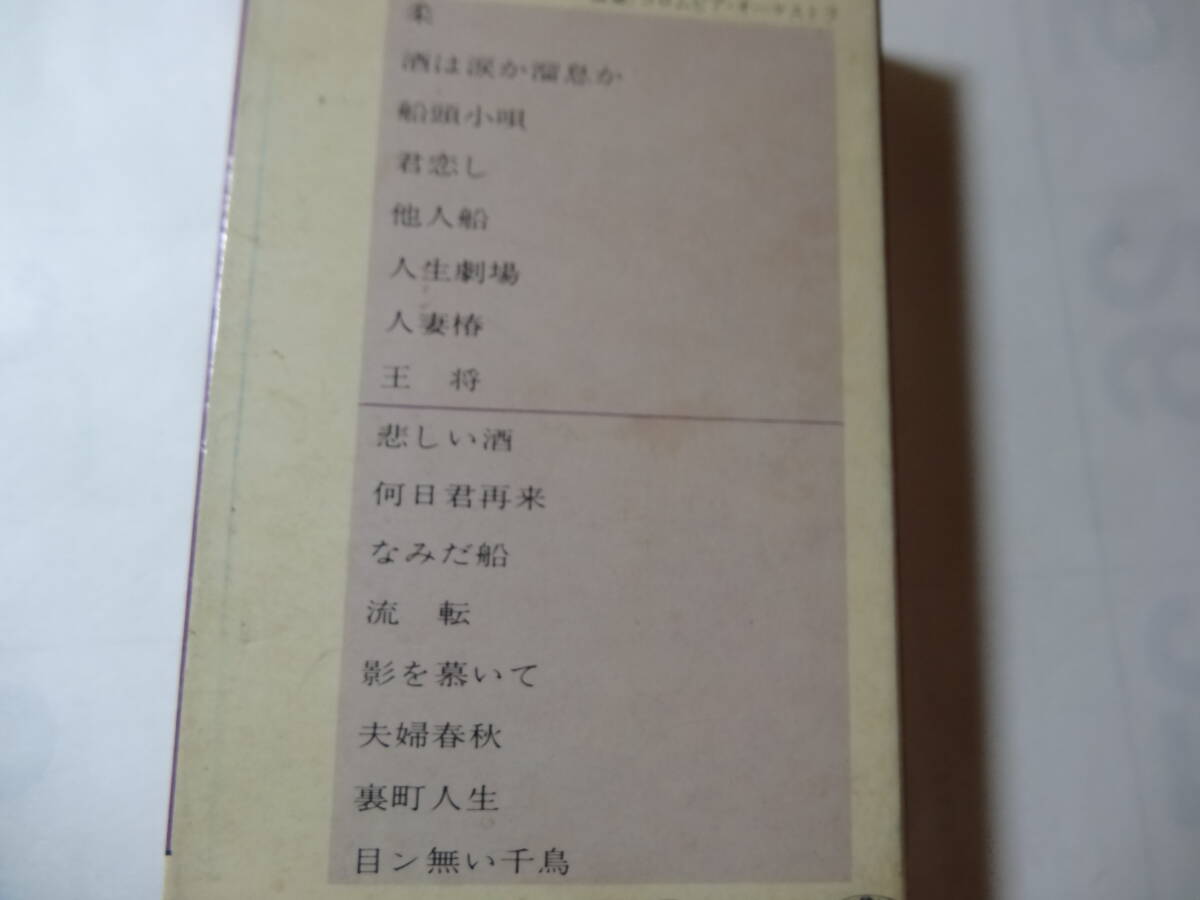 コロムビア・オーケストラ
柔
酒は涙か溜息か
船頭小唄
君恋し
他人船
人生劇場
人妻椿
王 将
悲しい酒
何日君再来
なみだ船
流 転
影を慕いて
夫婦春秋
裏町人生
目ン無い千鳥